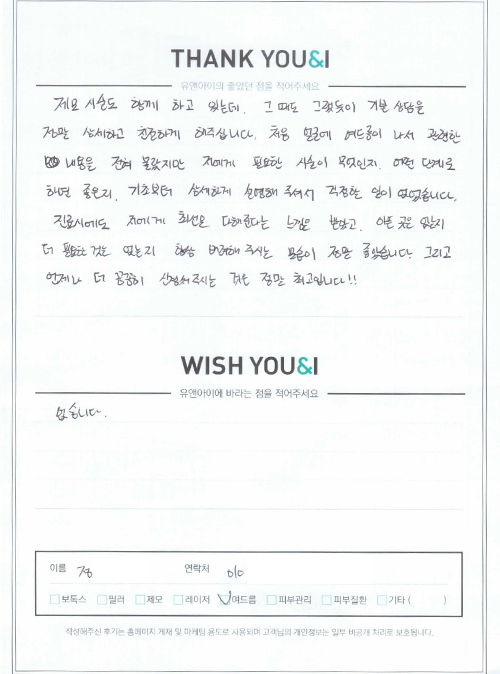 THANK YOU&I
유앤아이의 좋았던 점을 적어주세요
제모 시술도 함께 하고 있는데, 그 때도 그랬듯이 기본 상담을
정말 상세하고 친절하게 해주십니다. 처음 얼굴에 여드름이 나서 관련한
내용을 전혀 몰랐지만 저에게 필요한 시술이 무엇인지, 어떤 단계로
하면 좋은지, 기초부터 상세하게 설명해 주셔서 걱정한 일이 없었습니다.
진료시에도 저에게 최선을 다해준다는 느낌을 받았고, 아픈 곳은 없는지
더 필요한 것은 없는지 항상 배려해 주시는 모습이 정말 좋았습니다. 그리고
언제나 더 꼼꼼히 신경써주시는 것은 정말 최고입니다!!
WISH YOU&I
유앤아이에 바라는 점을 적어주세요
없습니다.
이름 정 연락처 010
보톡스 필러 제모 레이저 여드름 피부관리 피부질환 기타 ( )
작성해주신 후기는 홈페이지 게재 및 마케팅 용도로 사용되며 고객님의 개인정보는 일부 비공개 처리로 보호됩니다.